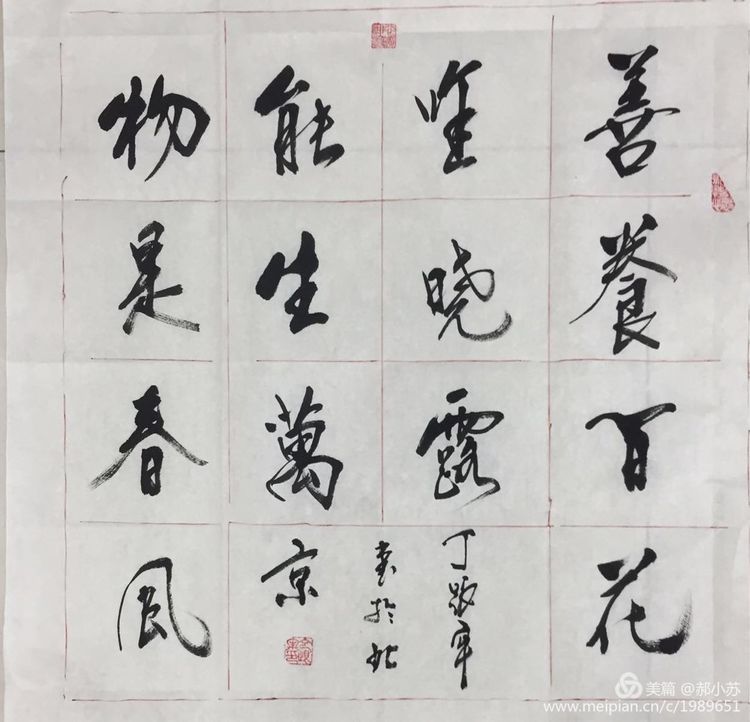 善養百花
唯晓露
能生萬
物是春風
丁
書於北
京
美篇 @郝小苏
www.meipian.cn/c/1989651